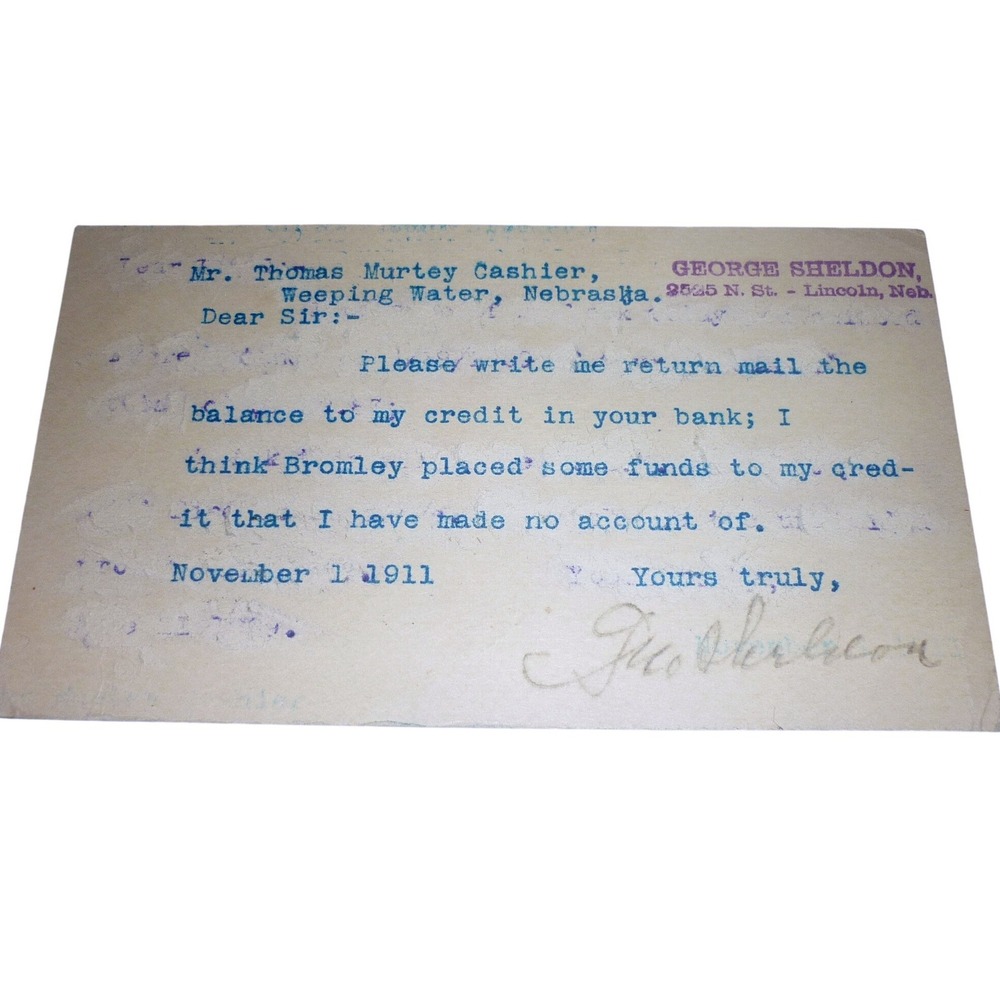 Mr. Thomas Murtey Cashier,
GEORGE SHELDON,
Weeping Water, Nebraska.
2525 N. St. - Lincoln, Neb.
Dear Sir:-
Please write me return mail the
balance to my credit in your bank; I
think Bromley placed some funds to my cred-
it that I have made no account of.
November 1 1911
Yours truly,
Geo Sheldon